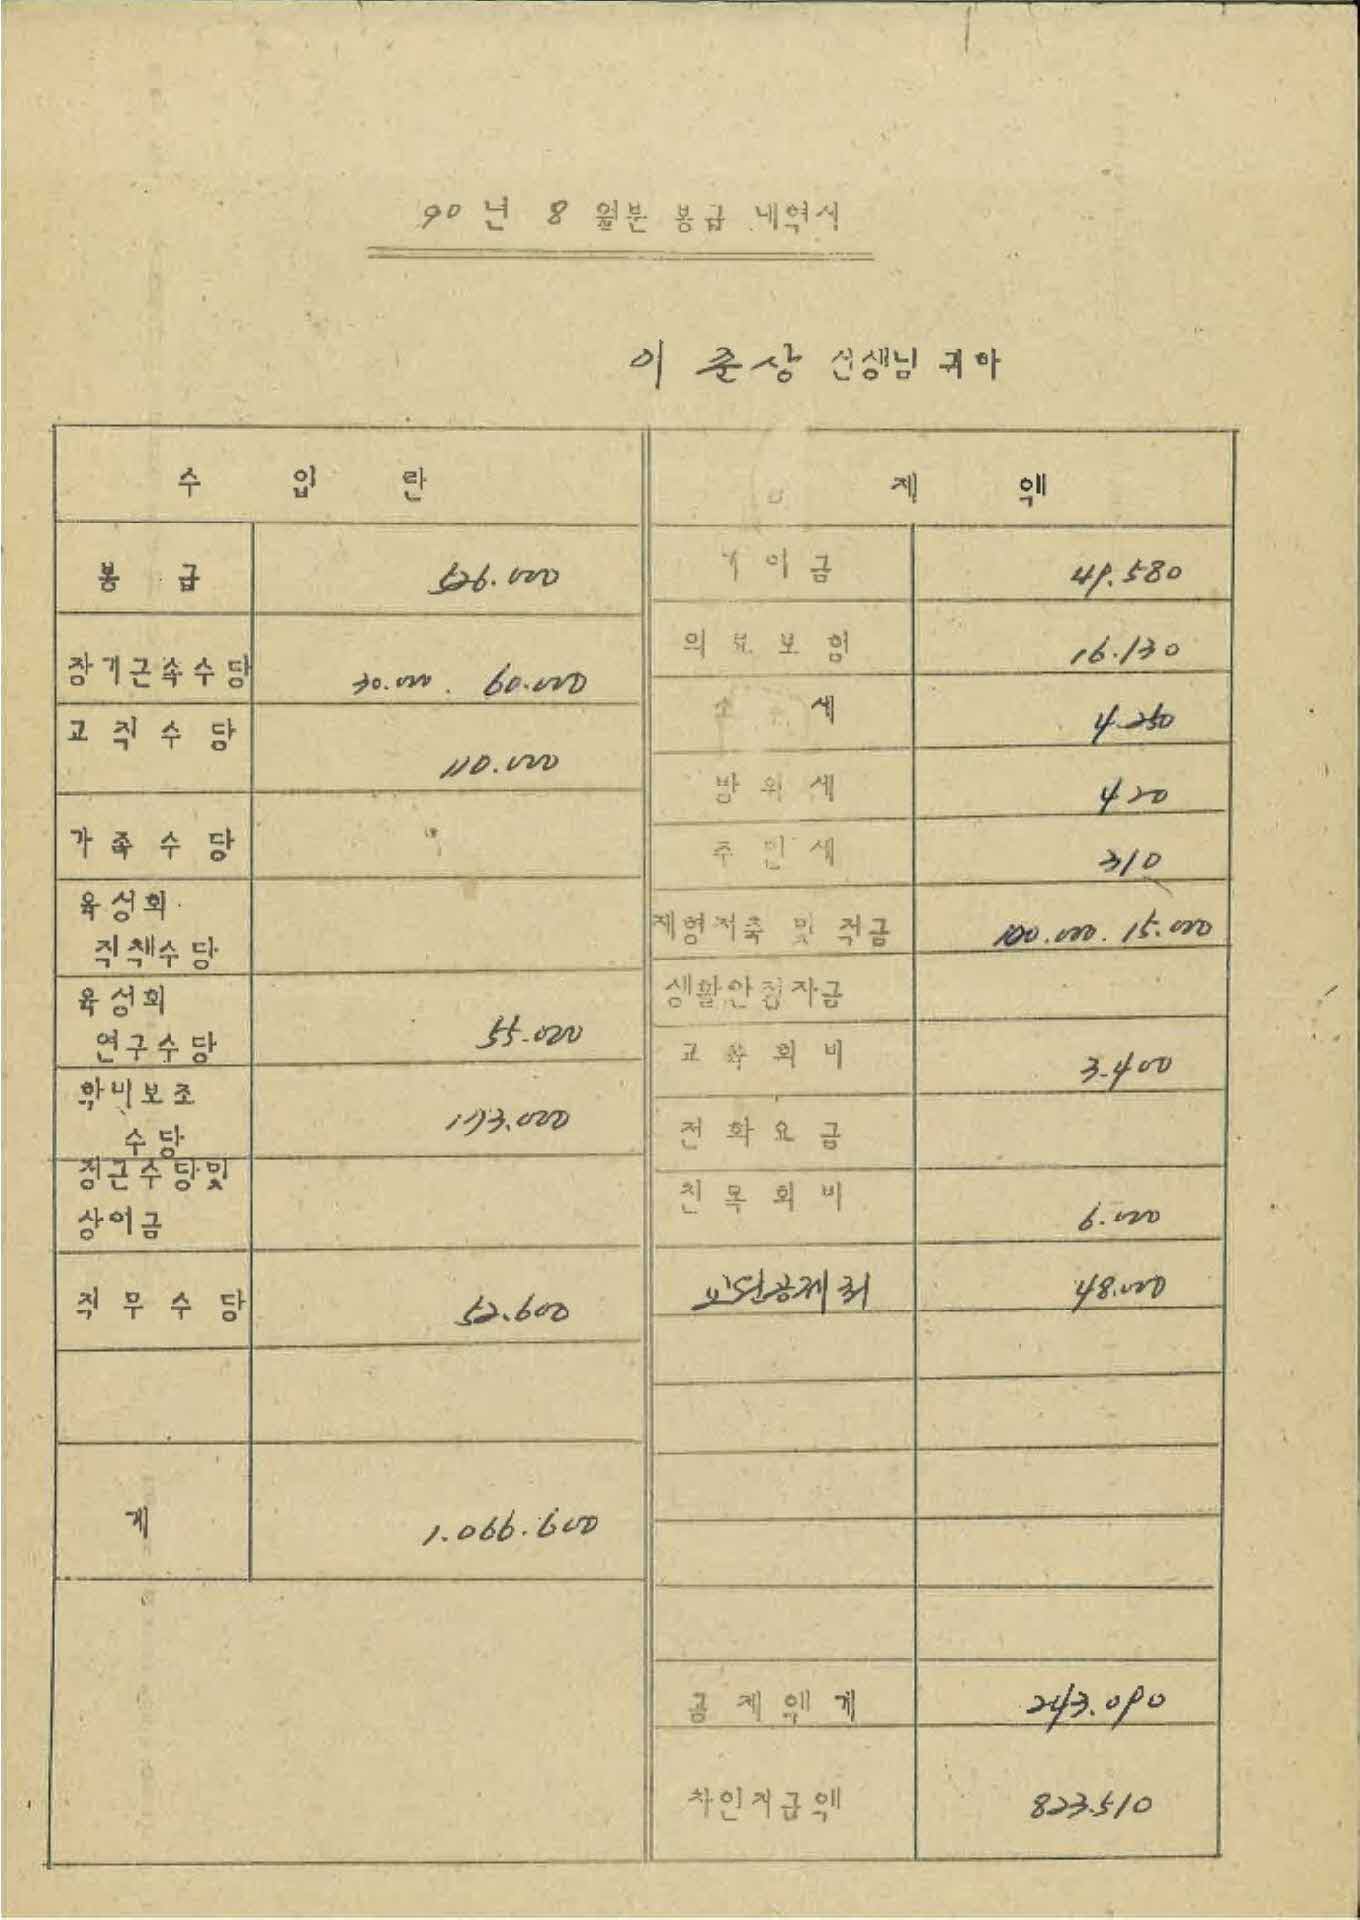 90 년 8 월분 봉급 내역서
이 준상 선생님 귀하
수 입 란
제 액
봉 급 526.000
장기근속수당 60.000
교 직 수 당 110.000
가 족 수 당
육성회
직책수당
육성회
연구수당 55.000
학비보조
수당
정근수당및
상여금
직 무 수 당 52.600
계 1.066.600
여금 49.580
의료보험 16.130
소 세 4.250
방 위 세 420
주 민 세 310
재형저축 및 적금 100.000. 15.000
생활안정자금
교 육 회 비 3.400
전 화 요 금
친 목 회 비 6.000
교원공제회 48.000
공 제 액 계 243.090
차인지급액 823.510